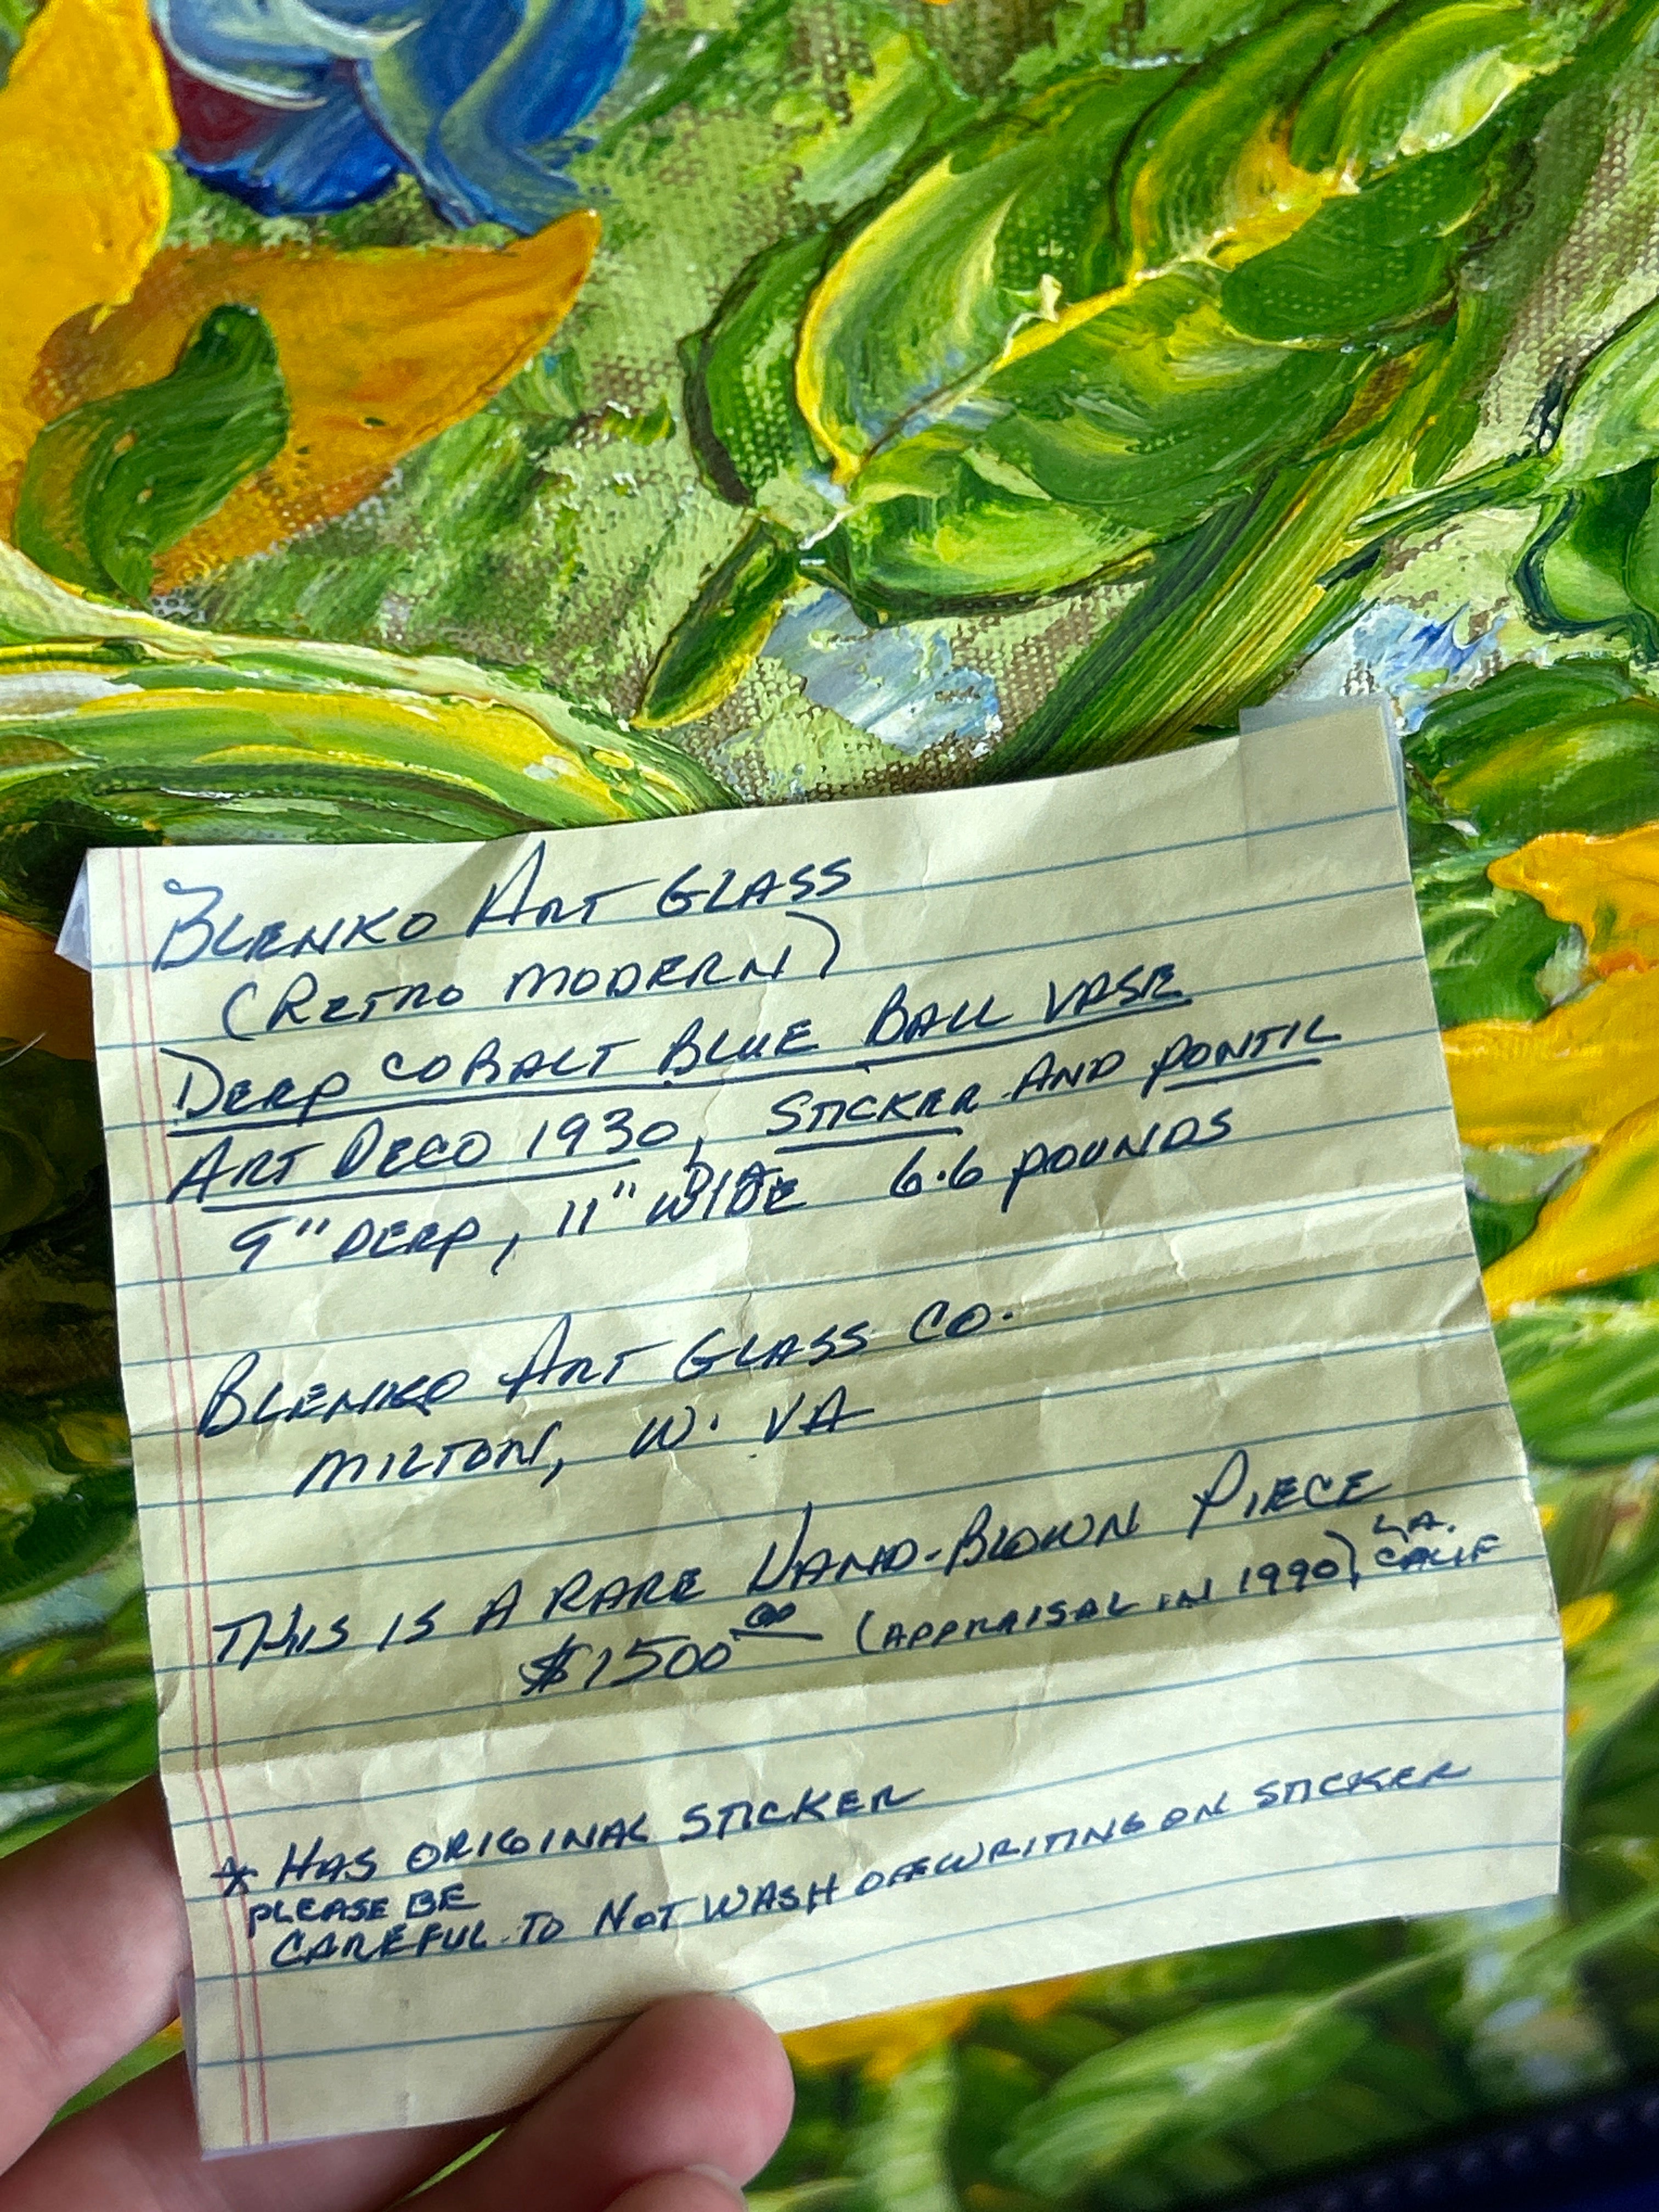 BLENKO ART GLASS
(RETRO MODERN)
DEEP COBALT BLUE BALL VASE
ART DECO 1930, STICKER AND PONTIL
9" DEEP, 11" WIDE 6.6 POUNDS
BLENKO ART GLASS CO.
MILTON, W. VA
THIS IS A RARE HAND-BLOWN PIECE
$1500.00 (APPRAISAL IN 1990) L.A. CALIF
* HAS ORIGINAL STICKER
PLEASE BE
CAREFUL TO NOT WASH OFF WRITING ON STICKER